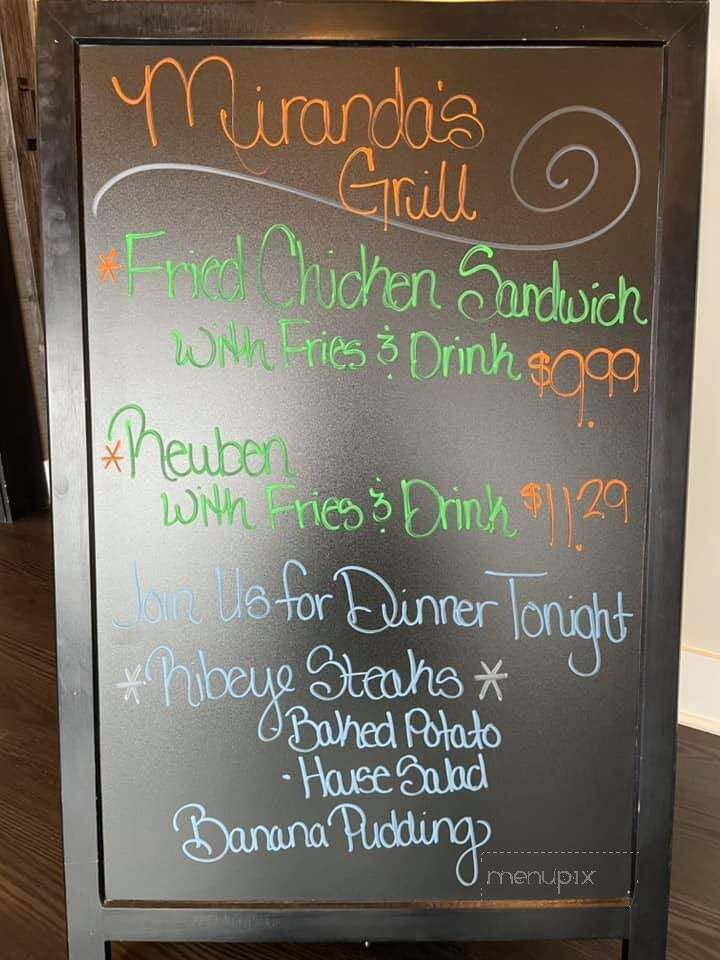 Miranda's
Grill
*Fried Chicken Sandwich
with Fries & Drink $9.99
*Reuben
with Fries & Drink $11.29
Join Us for Dinner Tonight
*Ribeye Steaks*
·Baked Potato
·House Salad
Banana Pudding
menupix